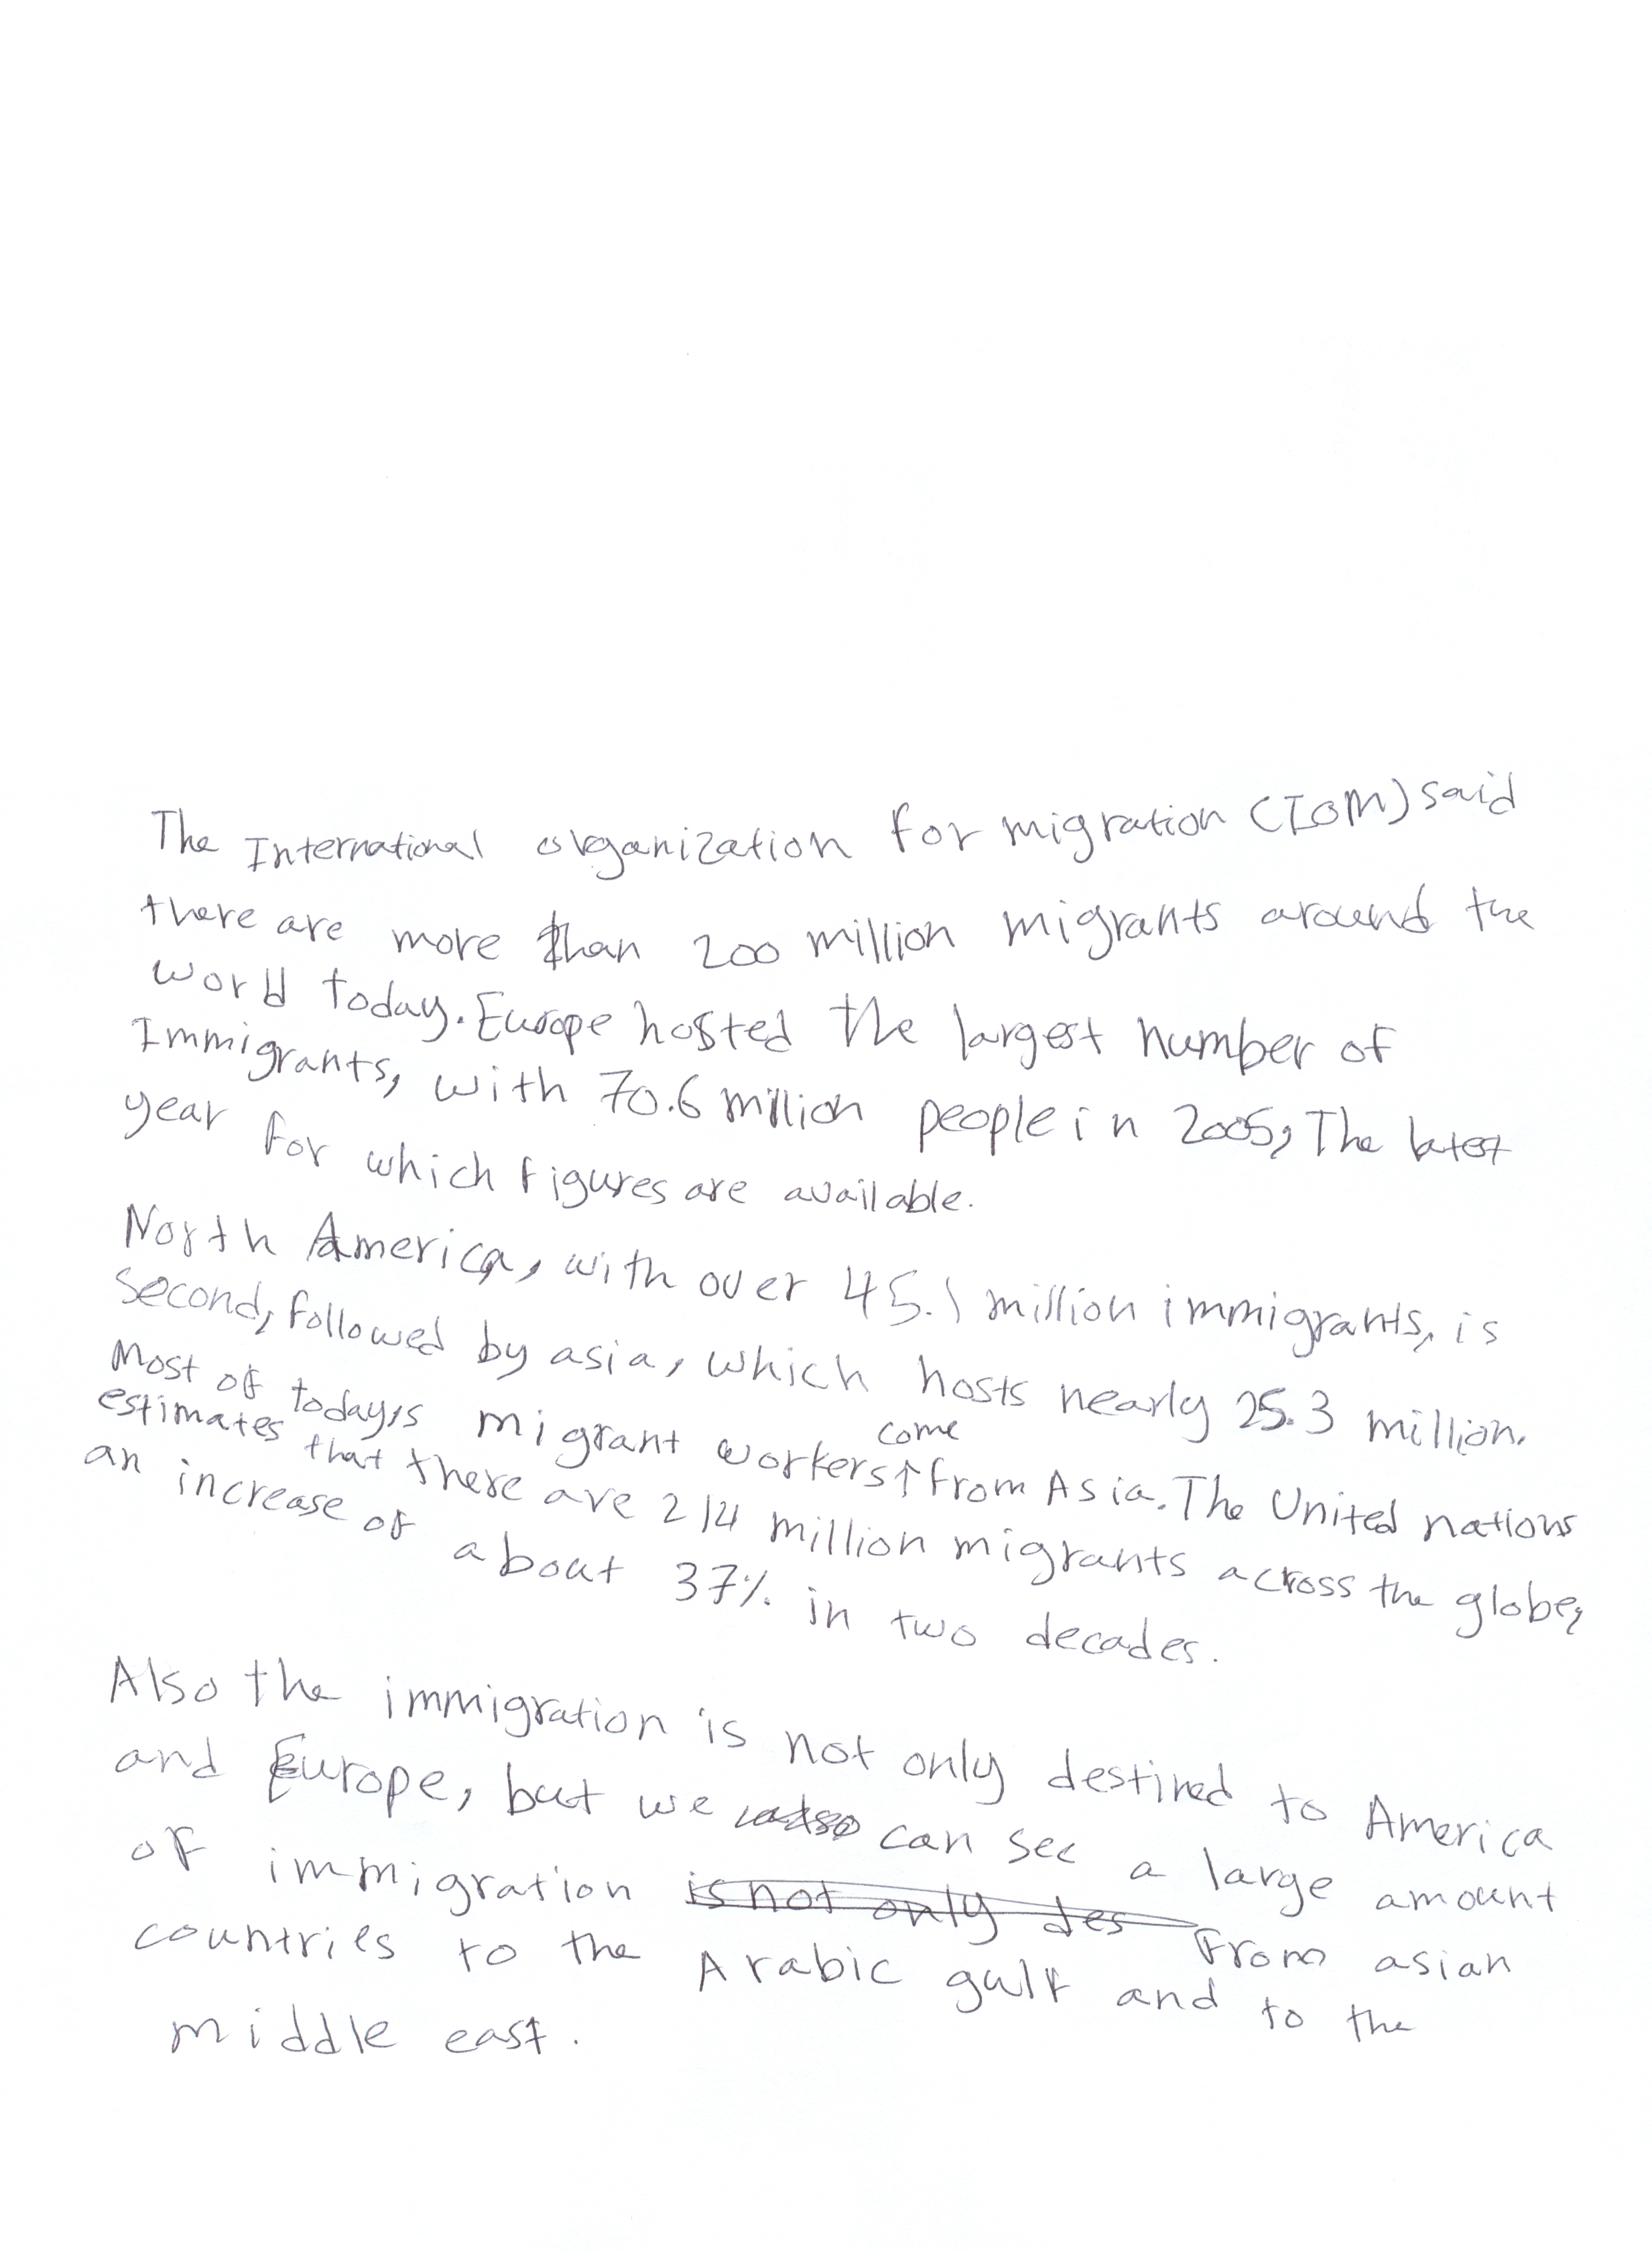 The International organization for migration (IOM) said
there are more than 200 million migrants around the
world today. Europe hosted the largest number of
Immigrants, with 70.6 million people in 2005, The latest
year for which figures are available.
North America, with over 45.1 million immigrants, is
second, followed by asia, which hosts nearly 25.3 million.
Most of today,s migrant workers come from Asia. The United nations
estimates that there are 214 million migrants across the globe,
an increase of about 37% in two decades.
Also the immigration is not only destined to America
and Europe, but we can see a large amount
of immigration is not only des from asian
countries to the Arabic gulf and to the
middle east.